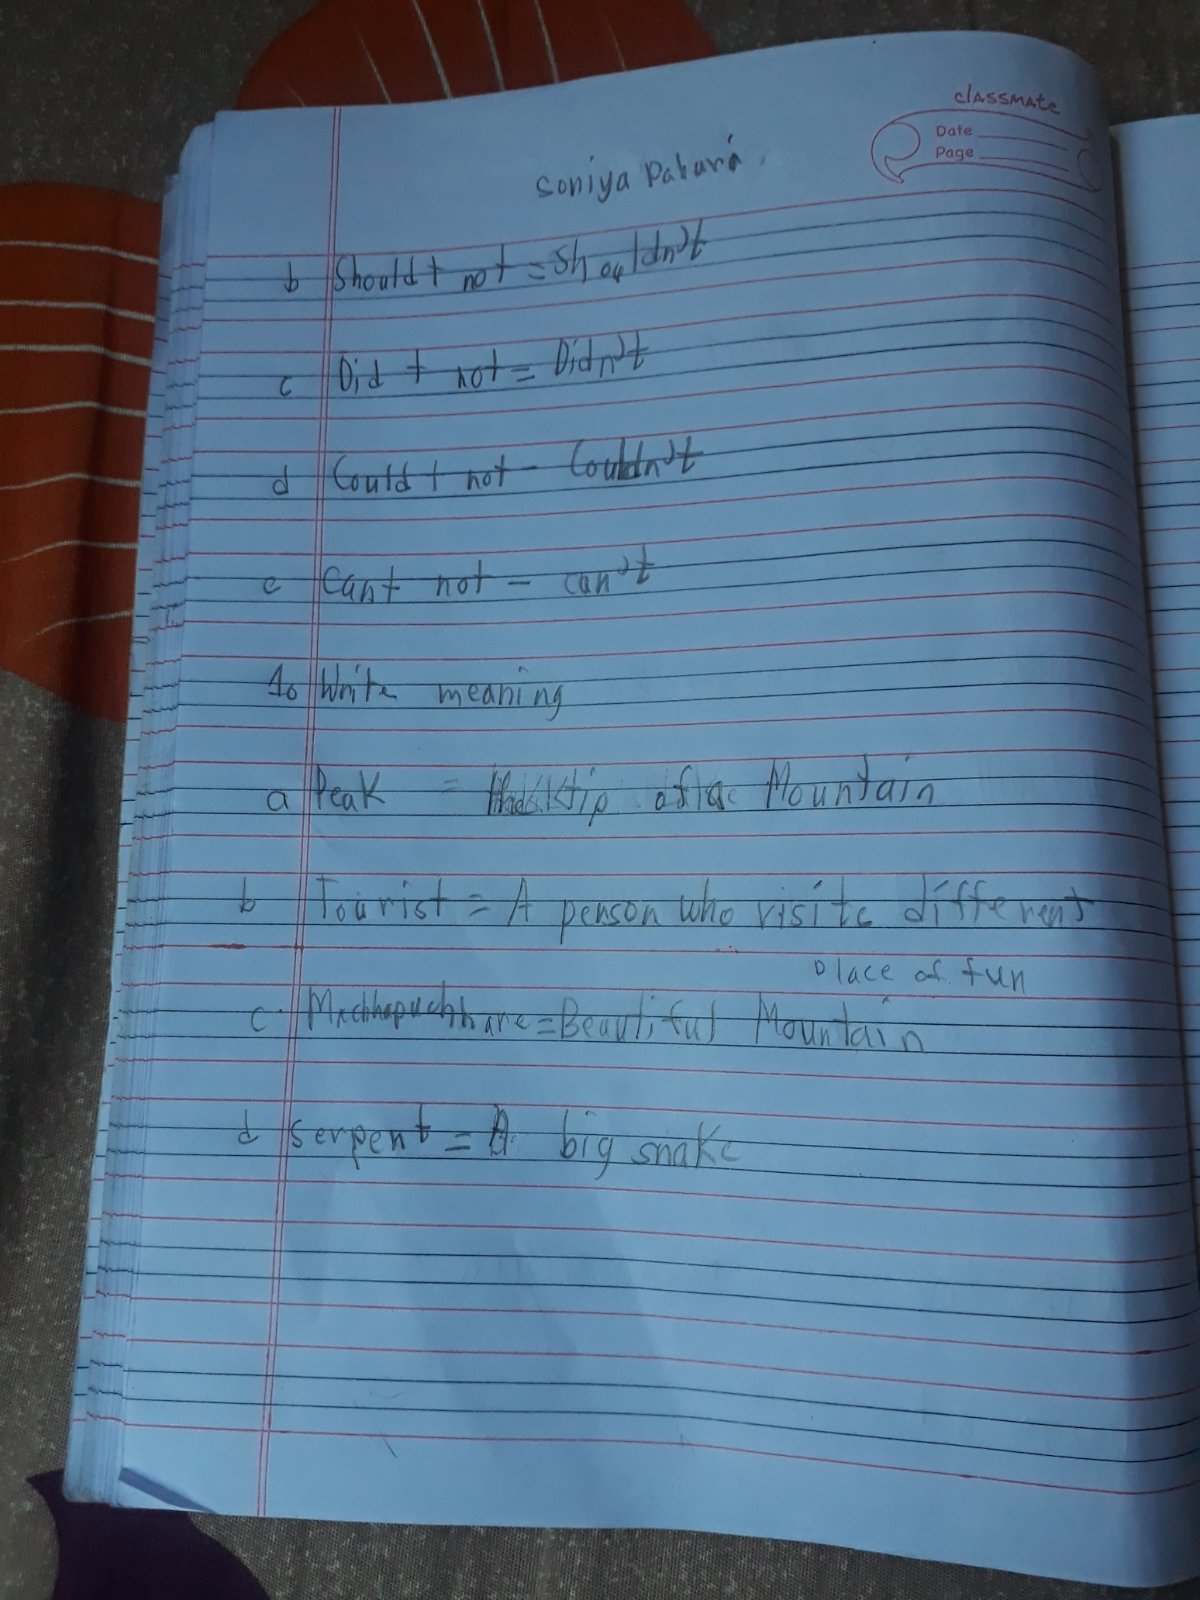 classmate
Date
Page
Soniya Pahari.
b Should + not = Shouldn't
c Did + not = Didn't
d Could + not - Couldn't
e Can + not - can't
1o Write meaning
a Peak = tip of a Mountain
b Tourist = A person who visite different
place of fun
c. Machhapuchhare = Beautiful Mountain
d serpent = A big snake